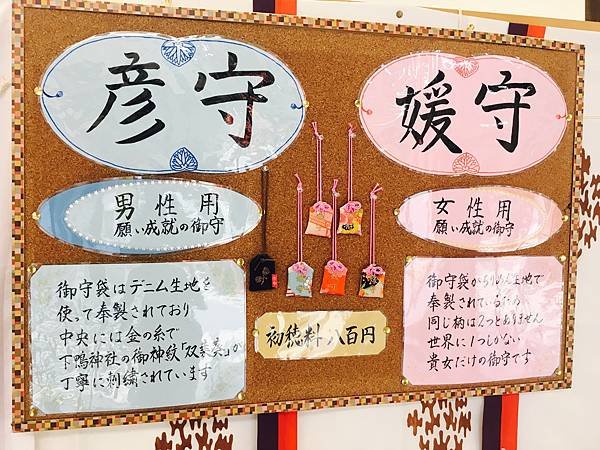 彦守
男性用
願い成就の御守
御守袋はデニム生地を
使って奉製されており
中央には金の糸で
下鴨神社の御神紋「双葉葵」が
丁寧に刺繍されています
初穂料 八百円
媛守
女性用
願い成就の御守
御守袋がちりめん生地で
奉製されているため
同じ柄は2つとありません
世界に1つしかない
貴女だけの御守です